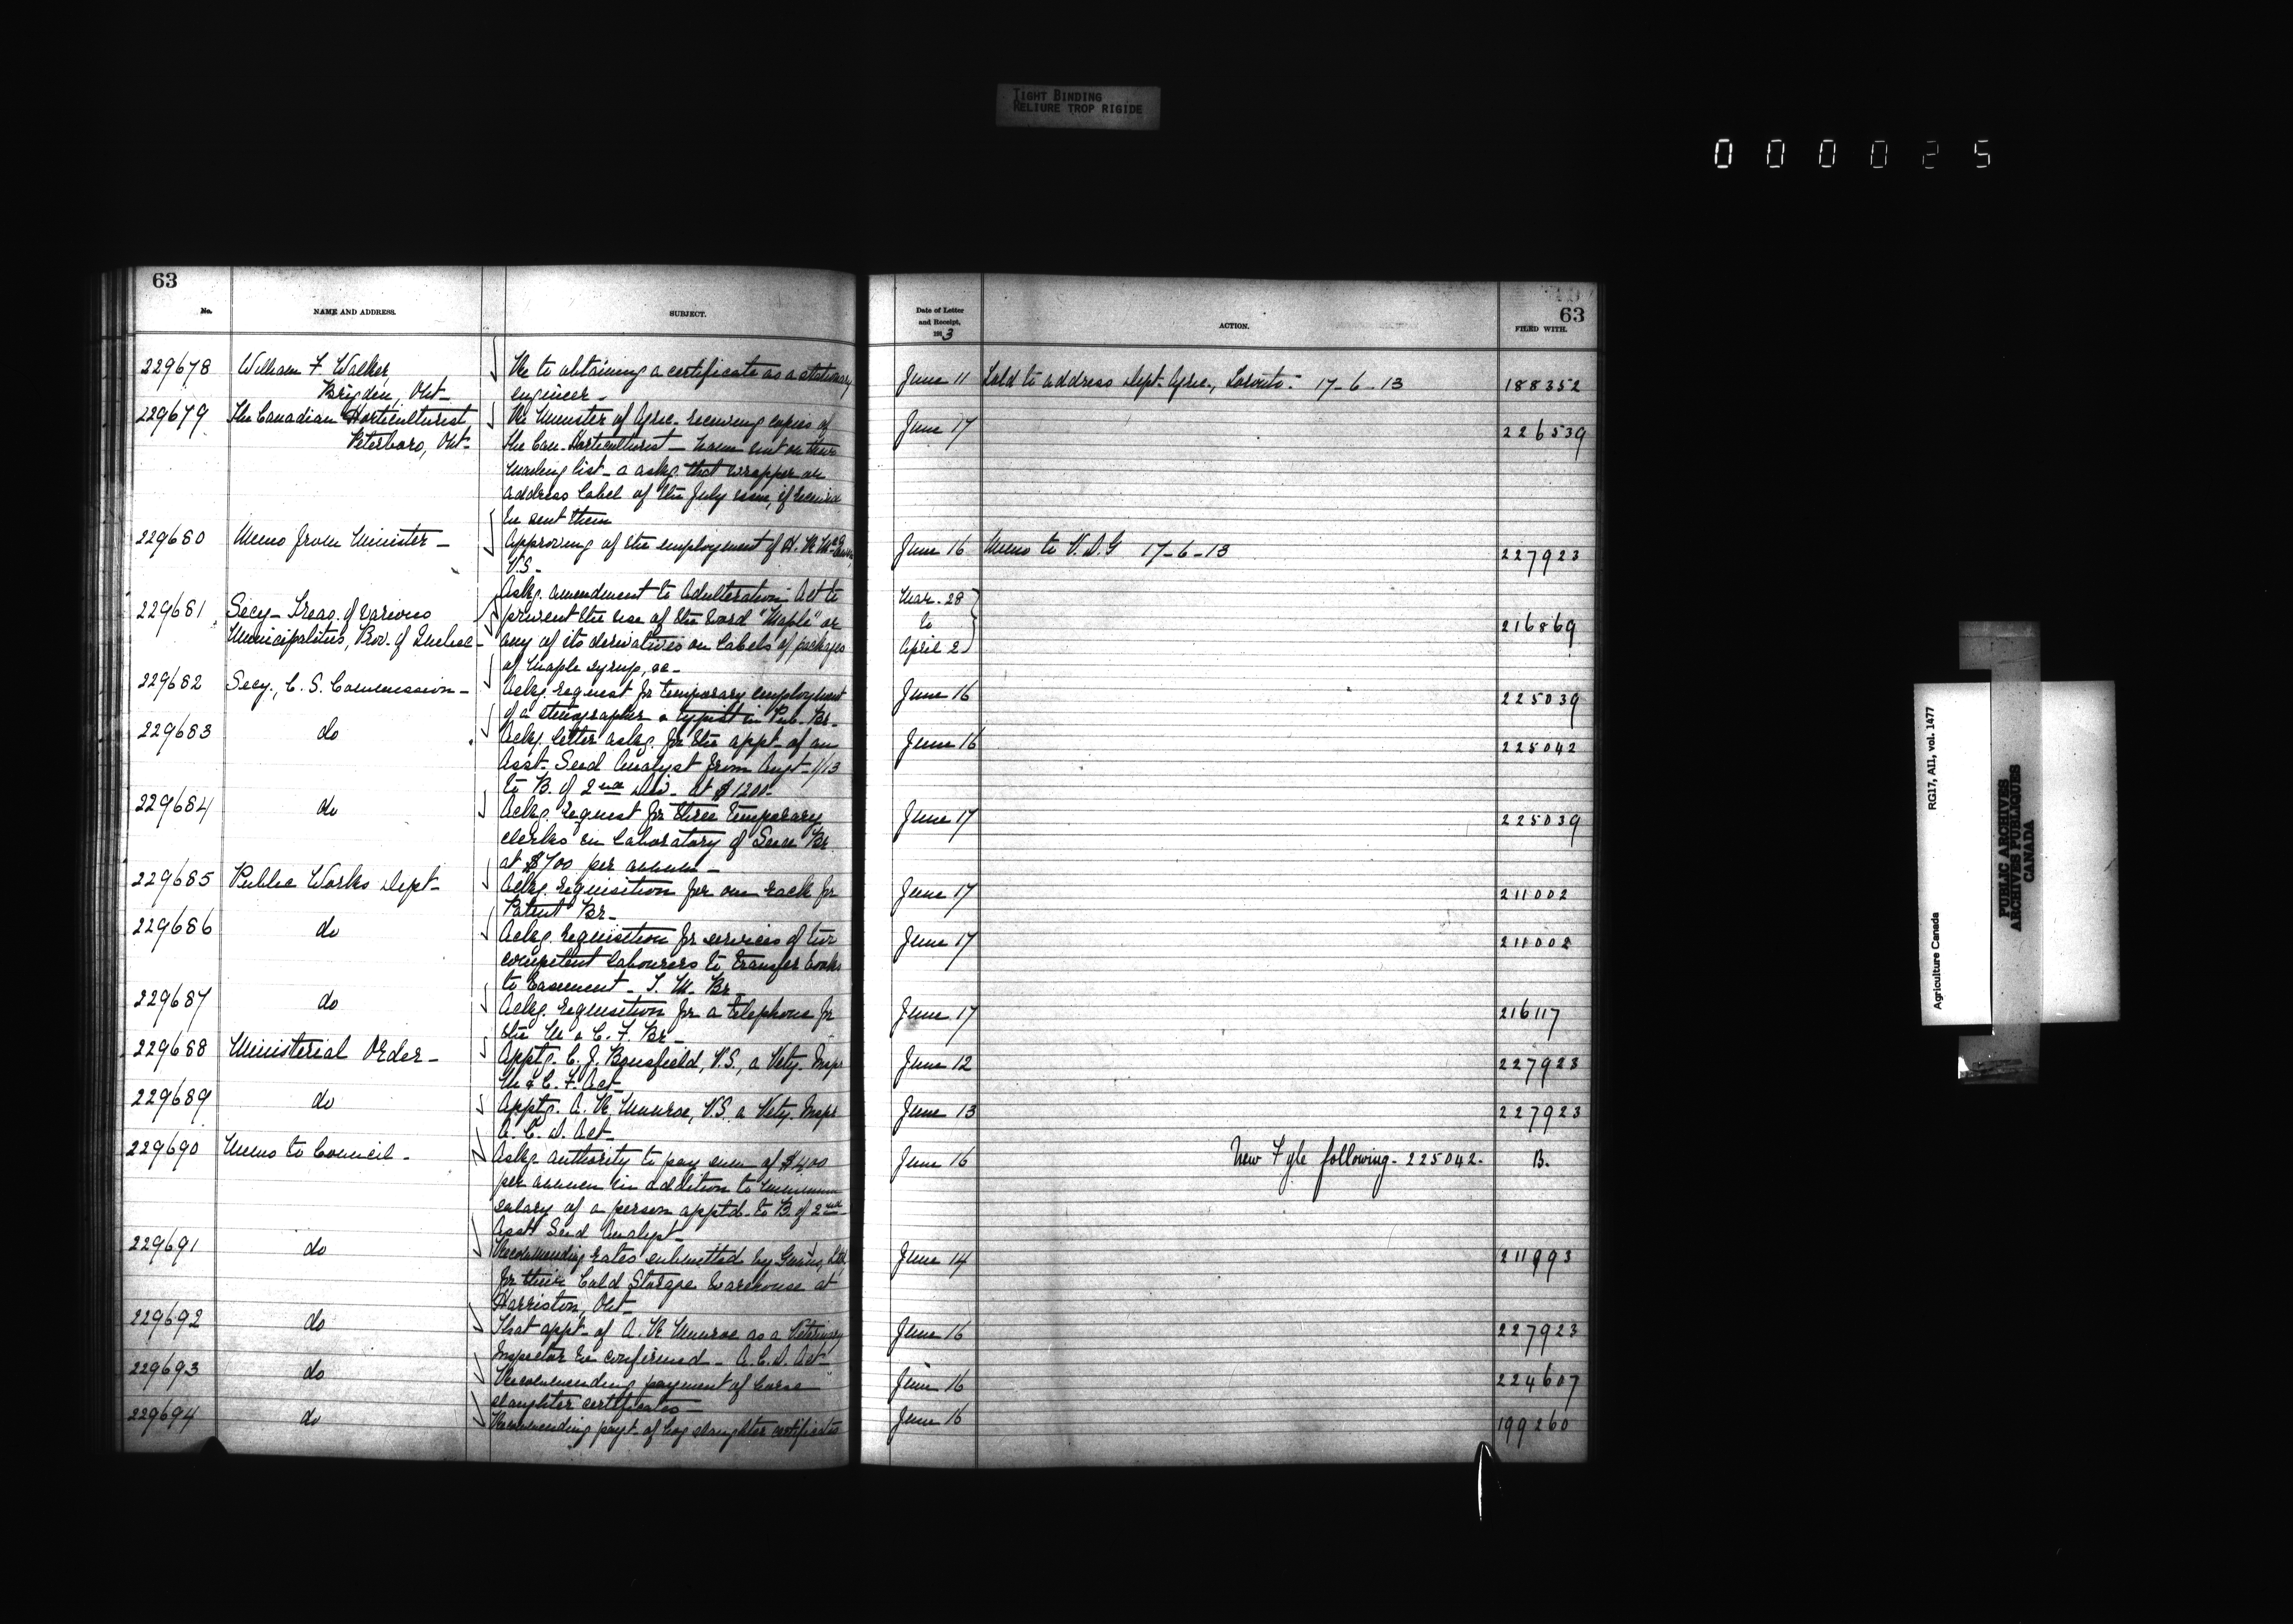 TIGHT BINDING
RELIURE TROP RIGIDE
000025
63
No.
NAME AND ADDRESS.
SUBJECT.
229678 William F Walker, Re to obtaining a certificate as a stationary
Brigden, Ont- engineer-
229679 The Canadian Horticulturist Re Minister of Agric. receiving copies of
Peterboro, Ont- the Can. Horticulturist - not on their
mailing list - & askg. that wrapper or
address label of the July issue, if received
be sent them
229680 Memo from Minister- Approving of the employment of A. R
V.S-
Askg. amendment to Adulteration Act to
229681 Secy-Treas. of various prevent the use of the word "Maple" or
Municipalities, Prov. of Quebec- any of its derivatives on labels of packages
of maple syrup, &c-
229682 Secy., C. S. Commission- Ackg. request for temporary employment
of a stenographer & typist in Pub. Br-
229683 do Ackg. letter askg. for the appt. of an
Asst. Seed Analyst from Augt. 1/13
to B. of 2nd Div. at $1200-
229684 do Ackg. request for three temporary
clerks in Laboratory of Seed Br.
at $700 per annum-
229685 Public Works Dept- Ackg. requisition for one rack for
Patent Br-
229686 do Ackg. requisition for services of two
competent labourers to transfer books
to basement- T. M. Br-
229687 do Ackg. requisition for a telephone for
the M & C. F. Br-
229688 Ministerial Order- Apptg. C. J. Bousfield, V.S., a Vety. Inspr
M & C. F. Act-
229689 do Apptg. A. R Munroe, V.S. a Vety. Inspr
A. C. D. Act-
229690 Memo to Council- Askg authority to pay sum of $400
per annum in addition to minimum
salary of a person apptd. to B. of 2nd-
Asst Seed Analyst-
229691 do Recommending rates submitted by Ltd,
for their Cold Storage Warehouse at
Harriston, Ont-
229692 do That appt- of A. R Munroe as a Veterinary
Inspector be confirmed - A. C. D. Act-
229693 do Recommending payment of horse
slaughter certificates-
229694 do Recommending payt- of hog slaughter certificates
63
Date of Letter
and Receipt,
1913
ACTION.
FILED WITH.
June 11 Told to address Dept. Agric., Toronto- 17-6-13 188352
June 17 226539
June 16 Memo to V.D.G 17-6-13 227923
Mar. 28
to 216869
April 2
June 16 225039
June 16 225042
June 17 225039
June 17 211002
June 17 211002
June 17 216117
June 12 227923
June 13 227923
June 16 New Fyle following-225042- B.
June 14 211993
June 16 227923
June 16 224607
June 16 199260
Agriculture Canada RG17, AII, vol. 1477
PUBLIC ARCHIVES
ARCHIVES PUBLIQUES
CANADA